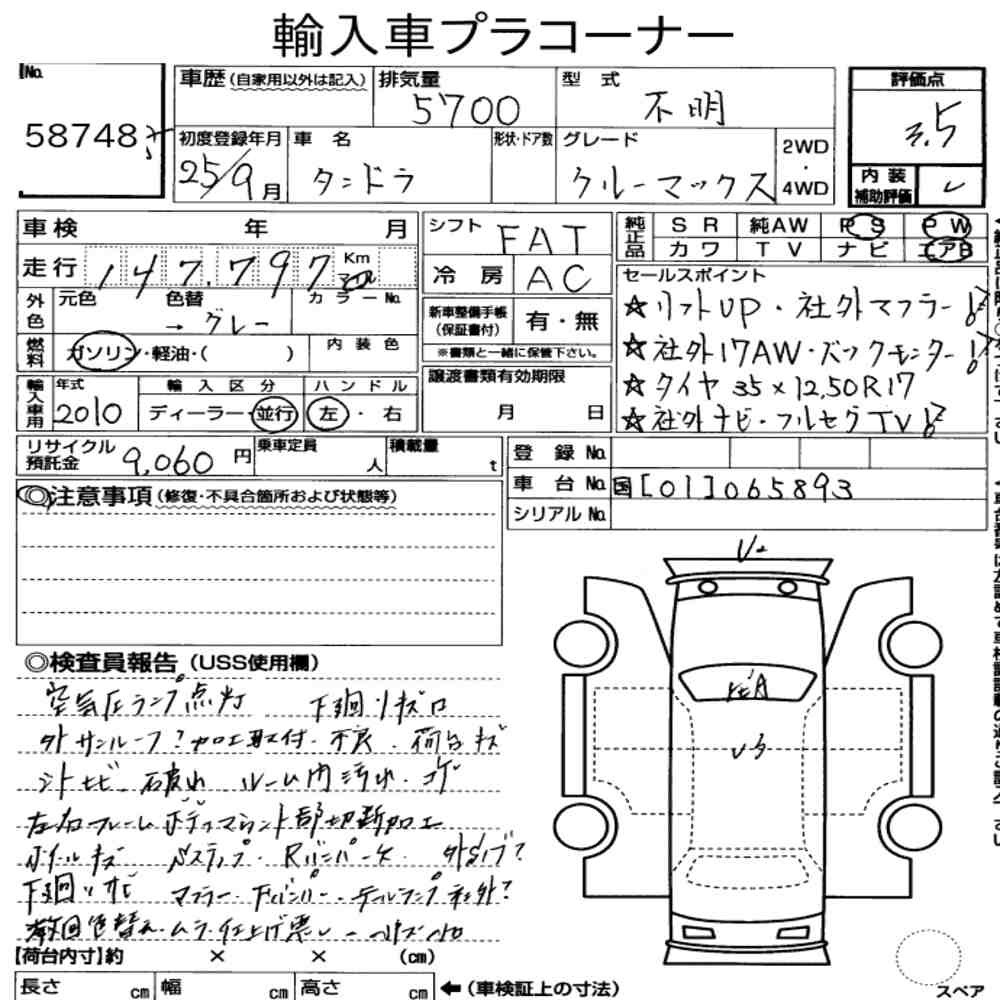 輸入車プラコーナー
No.
58748
車歴(自家用以外は記入)
排気量
5700
型 式
不明
評価点
3.5
初度登録年月
25/9月
車 名
タンドラ
形状・ドア数
グレード
クルーマックス
2WD
・
4WD
内装
補助評価
車検 年 月
走行 147,797 Km
外色
元色 色替 カラーNo.
→ グレー
燃料
ガソリン・軽油・( )
内装色
輸入車用
年式
2010
輸入区分
ディーラー・並行
ハンドル
左・右
シフト
FAT
冷房
AC
新車整備手帳
(保証書付)
有・無
※書類と一緒に保管下さい。
譲渡書類有効期限
月 日
純正品
SR 純AW PS PW
カワ TV ナビ エアB
セールスポイント
☆リフトUP・社外マフラー
☆社外17AW・バックモニター
☆タイヤ 35×12.50R17
☆社外ナビ・フルセグTV
リサイクル
預託金
9,060円
乗車定員
人
積載量
t
登録No.
車台No. 国[01]065893
シリアルNo.
◎注意事項(修復・不具合箇所および状態等)
◎検査員報告(USS使用欄)
空気圧ランプ点灯 下廻りキズロ
外サンルーフ?加工取付・不良・荷台キズ
シートセビ 破れ ルーム内汚れ・コゲ
左右フレームボディマウント部切断加工
ホイルキズ Sステップ・Rバンパーキズ 外
下廻りサビ マフラー・Fバンパー・テールランプ社外?
数回色替え・ムラ・仕上げ悪し
【荷台内寸】約 × × (cm)
長さ cm 幅 cm 高さ cm ←(車検証上の寸法)
スペア